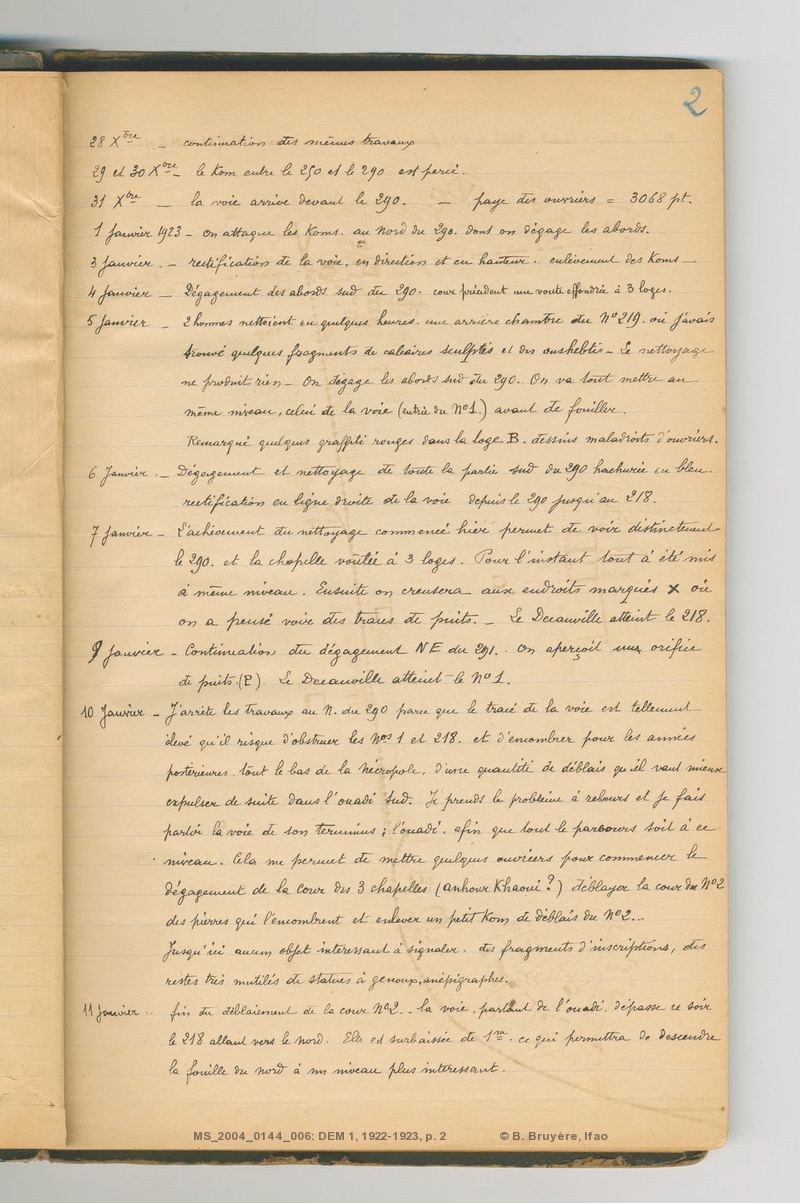 2
28 Xbre _ continuation des mêmes travaux
29 et 30 Xbre _ le Kom entre le 250 et le 290 est percé.
31 Xbre _ la voie arrive devant le 290. _ paye des ouvriers = 3068 pt.
1 Janvier 1923 _ on attaque les Koms. au Nord du 290. dont on dégage les abords.
3 Janvier. _ rectification de la voie. en direction et en hauteur. enlèvement des Koms _
4 Janvier _ Dégagement des abords sud du 290. cour précédent une voute effondrée à 3 loges.
5 Janvier _ 2 hommes nettoient en quelques heures. une arrière chambre du N° 219. où j'avais
trouvé quelques fragments de calcaires sculptés et des oushebtis _ Le nettoyage
ne produit rien _ On dégage les abords sud du 290. On va tout mettre au
même niveau, celui de la voie (entrée du N° 1.) avant de fouiller.
Remarqué quelques graffiti rouges dans la loge B. dessins maladroits d'ouvriers.
6 Janvier. _ Dégagement et nettoyage de toute la partie sud du 290 hachurée en bleu.
rectification en ligne droite de la voie depuis le 290 jusqu'au 218.
7 Janvier _ L'achèvement du nettoyage commencé hier permet de voir distinctement
le 290. et la chapelle voutée à 3 loges. Pour l'instant tout a été mis
à même niveau. Ensuite on creusera aux endroits marqués X où
on a pensé voir des traces de puits. _ Le Decauville atteint le 218.
9 Janvier _ Continuation du dégagement NE du 291. On aperçoit un orifice
de puits. (P) Le Decauville atteint le N° 1.
10 Janvier _ J'arrête les travaux au N. du 290 parce que le tracé de la voie est tellement
élevé qu'il risque d'obstruer les Nos 1 et 218. et d'encombrer pour les années
postérieures. tout le bas de la nécropole, d'une quantité de déblais qu'il vaut mieux
expulser de suite dans l'ouadi Sud. Je prends le problème à rebours et je fais
partir la voie de son terminus ; l'ouadi. afin que tout le parcours soit à ce
niveau. Cela me permet de mettre quelques ouvriers pour commencer le
dégagement de la cour des 3 chapelles (Anhour Khaoui ?) déblayer la cour du N° 2
des pierres qui l'encombrent et enlever un petit Kom de déblais du N° 2..
Jusqu'ici aucun objet intéressant à signaler. des fragments d'inscriptions, des
restes très mutilés de statues à genoux, anépigraphes.
11 Janvier.. fin du déblaiement de la cour N° 2.. la voie, partant de l'ouadi, dépasse ce soir
le 218 allant vers le nord. Elle est surbaissée de 1m. ce qui permettra de descendre
la fouille du nord à un niveau plus intéressant.
MS_2004_0144_006: DEM 1, 1922-1923, p. 2 © B. Bruyère, Ifao